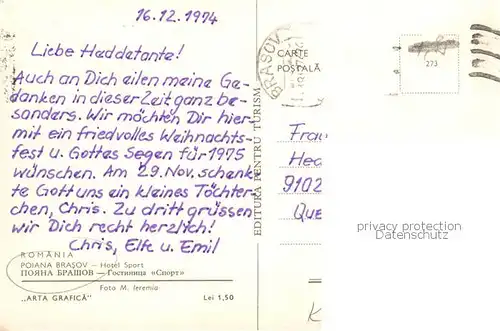 16.12.1974
Liebe Heddetante!
Auch an Dich eilen meine Ge-
danken in dieser Zeit ganz be-
sonders. Wir möchten Dir hier-
mit ein friedvolles Weihnachts-
fest u. Gottes Segen für 1975
wünschen. Am 29. Nov. schenk-
te Gott uns ein kleines Töchter-
chen, Chris. Zu dritt grüssen
wir Dich recht herzlich!
Chris, Elfe u. Emil
ROMÂNIA
POIANA BRAȘOV — Hotel Sport
ПОЯНА БРАШОВ — Гостиница «Спорт»
Foto M. Ieremia
„ARTA GRAFICĂ"
Lei 1,50
EDITURA PENTRU TURISM
BRASOV
CARTE
POSTALĂ
273
Frau
Hed
9102
Que
privacy protection
Datenschutz
K